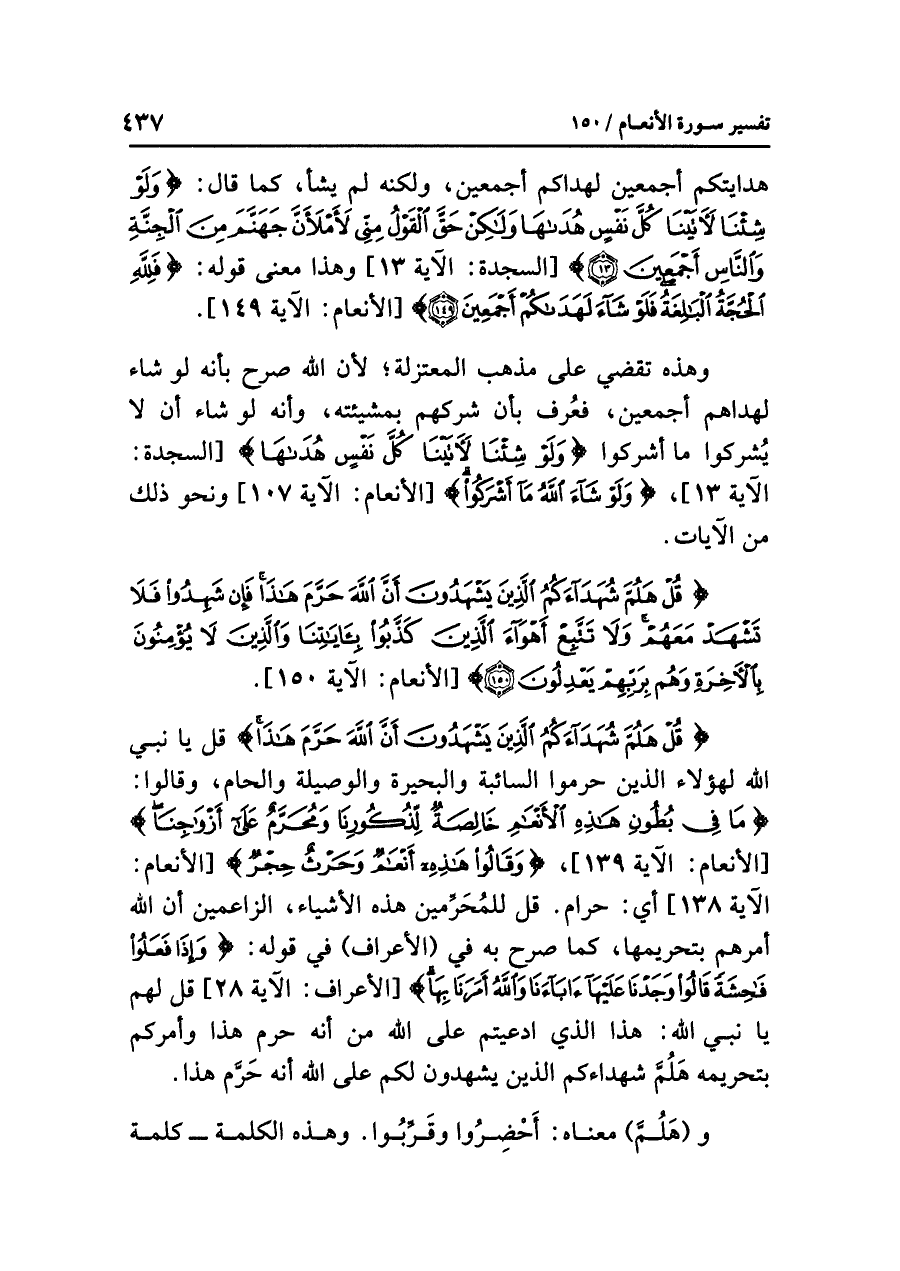 تفسير سورة الأنعام / ١٥٠ ٤٣٧
هدايتكم أجمعين لهداكم أجمعين، ولكنه لم يشأ، كما قال: ﴿ وَلَوْ
شِئْنَا لَأَتَيْنَا كُلَّ نَفْسٍ هُدَىٰهَا وَلَٰكِنْ حَقَّ ٱلْقَوْلُ مِنِّي لَأَمْلَأَنَّ جَهَنَّمَ مِنَ ٱلْجِنَّةِ
وَٱلنَّاسِ أَجْمَعِينَ ١٣﴾ [السجدة: الآية ١٣] وهذا معنى قوله: ﴿ فَلِلَّهِ
ٱلْحُجَّةُ ٱلْبَٰلِغَةُ فَلَوْ شَآءَ لَهَدَىٰكُمْ أَجْمَعِينَ ١٤٩﴾ [الأنعام: الآية ١٤٩].
وهذه تقضي على مذهب المعتزلة؛ لأن الله صرح بأنه لو شاء
لهداهم أجمعين، فعُرف بأن شركهم بمشيئته، وأنه لو شاء أن لا
يُشركوا ما أشركوا ﴿ وَلَوْ شِئْنَا لَأَتَيْنَا كُلَّ نَفْسٍ هُدَىٰهَا﴾ [السجدة:
الآية ١٣]، ﴿ وَلَوْ شَآءَ ٱللَّهُ مَآ أَشْرَكُوا۟ۗ﴾ [الأنعام: الآية ١٠٧] ونحو ذلك
من الآيات.
﴿ قُلْ هَلُمَّ شُهَدَآءَكُمُ ٱلَّذِينَ يَشْهَدُونَ أَنَّ ٱللَّهَ حَرَّمَ هَٰذَاۖ فَإِن شَهِدُوا۟ فَلَا
تَشْهَدْ مَعَهُمْۚ وَلَا تَتَّبِعْ أَهْوَآءَ ٱلَّذِينَ كَذَّبُوا۟ بِـَٔايَٰتِنَا وَٱلَّذِينَ لَا يُؤْمِنُونَ
بِٱلْأَخِرَةِ وَهُم بِرَبِّهِمْ يَعْدِلُونَ ١٥٠﴾ [الأنعام: الآية ١٥٠].
﴿ قُلْ هَلُمَّ شُهَدَآءَكُمُ ٱلَّذِينَ يَشْهَدُونَ أَنَّ ٱللَّهَ حَرَّمَ هَٰذَاۖ﴾ قل يا نبي
الله لهؤلاء الذين حرموا السائبة والبحيرة والوصيلة والحام، وقالوا:
﴿ مَا فِى بُطُونِ هَٰذِهِ ٱلْأَنْعَٰمِ خَالِصَةٌ لِّذُكُورِنَا وَمُحَرَّمٌ عَلَىٰٓ أَزْوَٰجِنَاۖ ﴾
[الأنعام: الآية ١٣٩]، ﴿ وَقَالُوا۟ هَٰذِهِۦٓ أَنْعَٰمٌ وَحَرْثٌ حِجْرٌ ﴾ [الأنعام:
الآية ١٣٨] أي: حرام. قل للمُحَرِّمين هذه الأشياء، الزاعمين أن الله
أمرهم بتحريمها، كما صرح به في (الأعراف) في قوله: ﴿ وَإِذَا فَعَلُوا۟
فَٰحِشَةً قَالُوا۟ وَجَدْنَا عَلَيْهَآ ءَابَآءَنَا وَٱللَّهُ أَمَرَنَا بِهَاۗ﴾ [الأعراف: الآية ٢٨] قل لهم
يا نبي الله: هذا الذي ادعيتم على الله من أنه حرم هذا وأمركم
بتحريمه هَلُمَّ شهداءكم الذين يشهدون لكم على الله أنه حَرَّم هذا.
و (هَلُمَّ) معناه: أَحْضِرُوا وقَرِّبُوا. وهذه الكلمة ــ كلمة